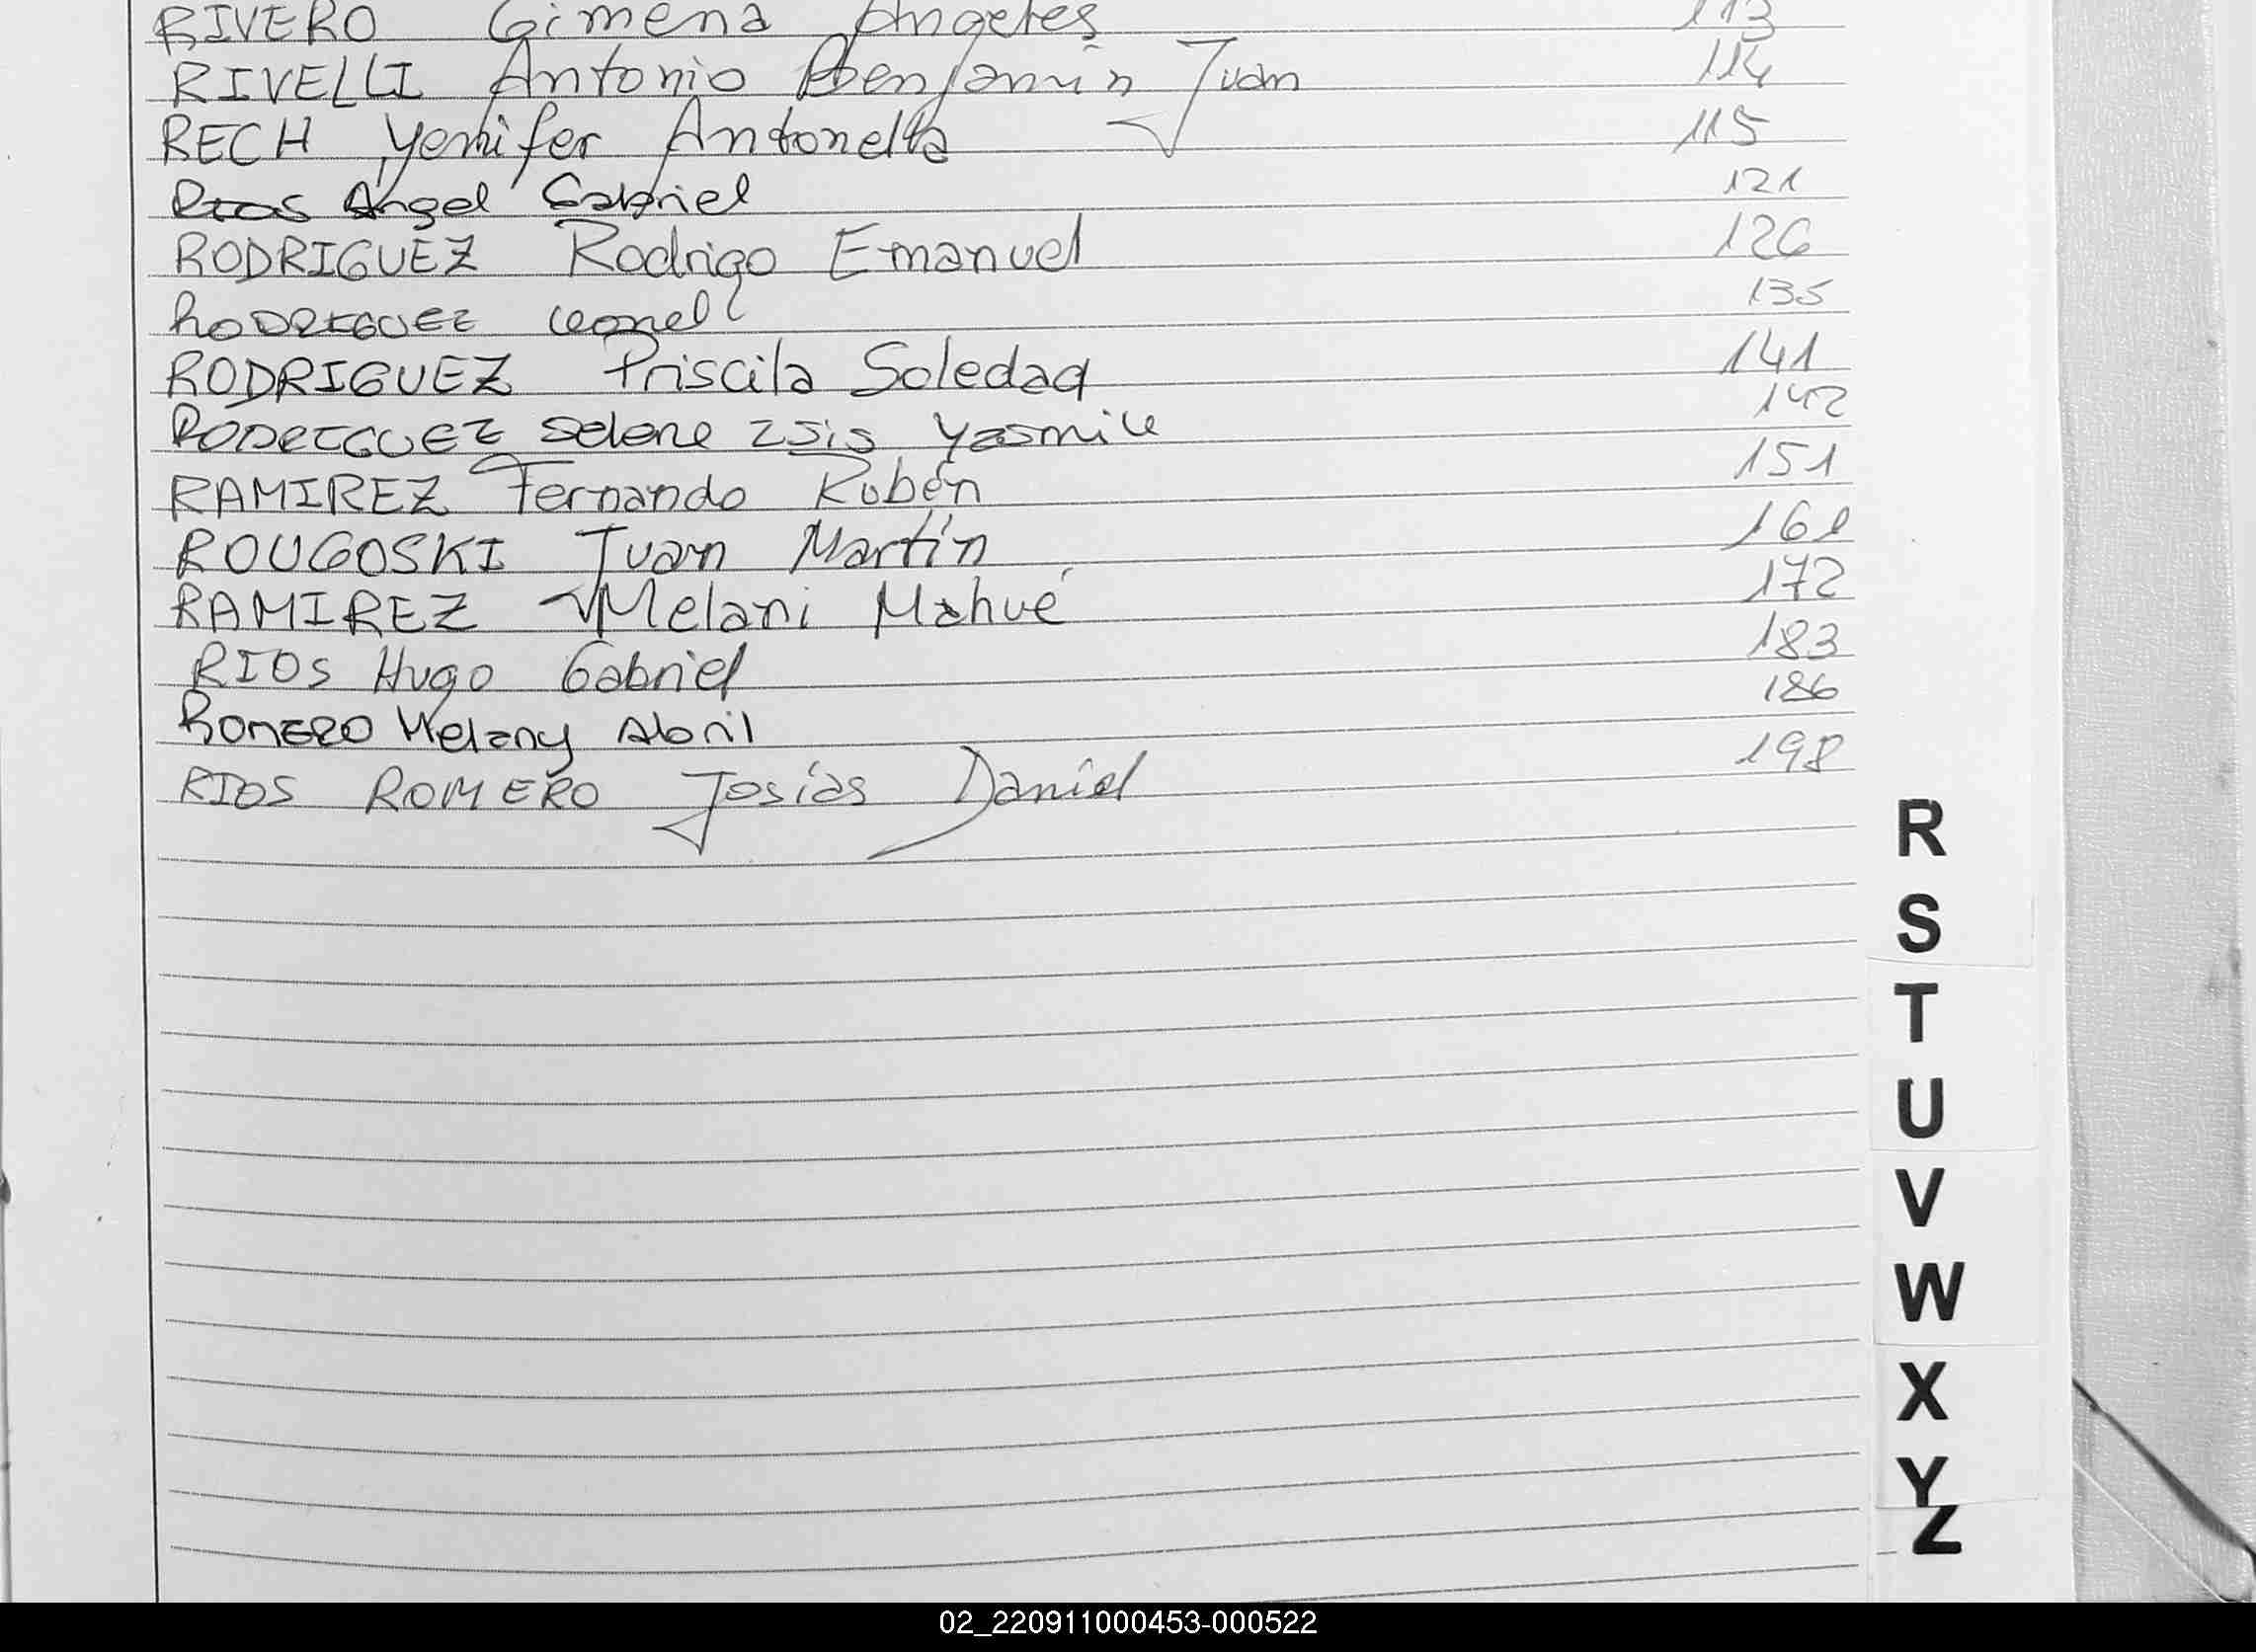 RIVERO Gimena Angeles 113
RIVELLI Antonio Benjamín Juan 114
RECH Yemifer Antonella 115
Rios Angel Gabriel 121
RODRIGUEZ Rodrigo Emanuel 126
RODRIGUEZ Leonel 135
RODRIGUEZ Priscila Soledad 141
RODRIGUEZ Selene Isis Yasmile 142
RAMIREZ Fernando Rubén 151
ROUGOSKI Juan Martín 161
RAMIREZ Melani Mahué 172
RIOS Hugo Gabriel 183
ROMERO Melany Abril 186
RIOS ROMERO Josías Daniel 198
R
S
T
U
V
W
X
Y
Z
02_220911000453-000522